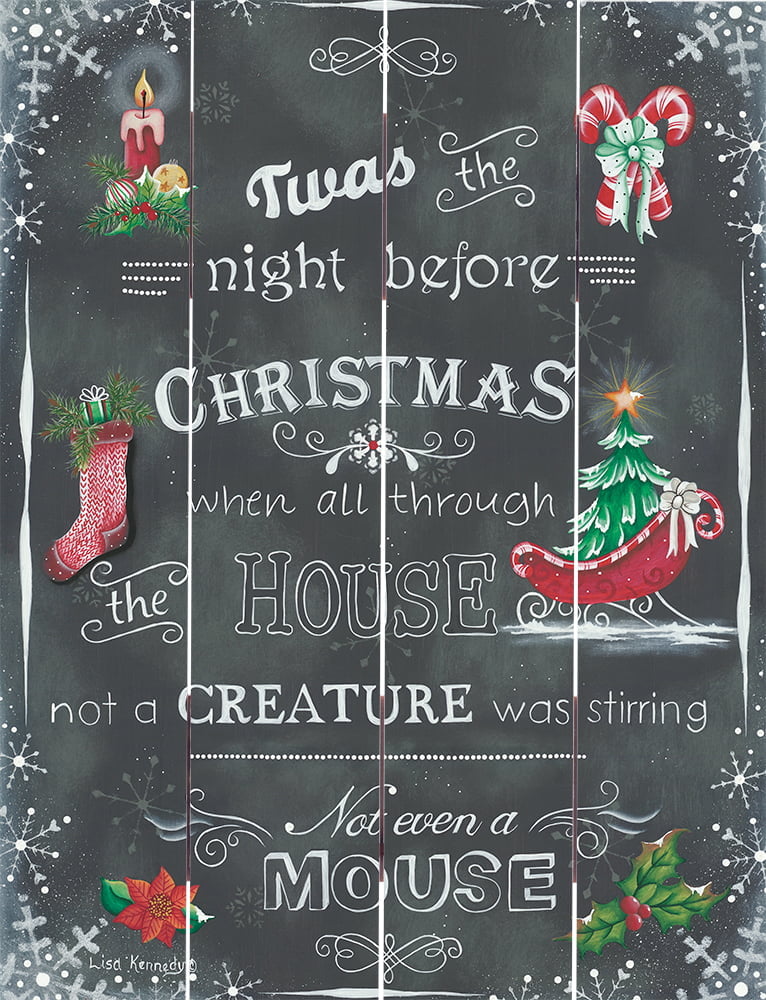 Twas the
night before
CHRISTMAS
when all through
the HOUSE
not a CREATURE was stirring
Not even a
MOUSE
Lisa Kennedy ©